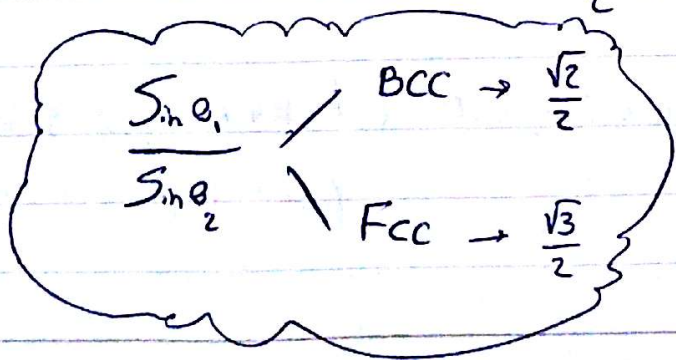 Sin θ₁ / Sin θ₂
BCC → √2/2
FCC → √3/2